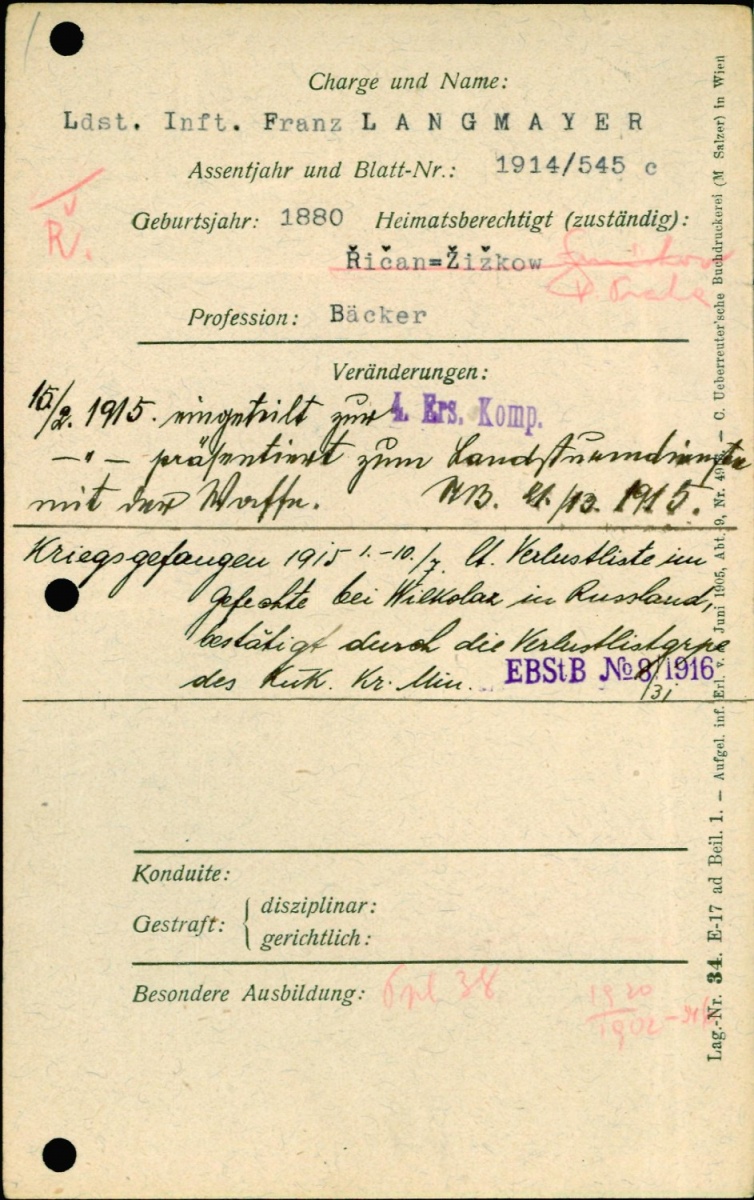 Charge und Name:
Ldst. Inft. Franz LANGMAYER
Assentjahr und Blatt-Nr.: 1914/545 c
Geburtsjahr: 1880 Heimatsberechtigt (zuständig):
R.
Řičan=Žižkow
Profession: Bäcker
Veränderungen:
15/2. 1915. eingeteilt zur 4. Ers. Komp.
—"— präsentiert zum Landsturmdienste
mit der Waffe. 1915.
Kriegsgefangen 1915 1.-10./7. lt. Verlustliste im
Gefechte bei Wilkolaz in Russland,
bestätigt durch die Verlustlistgrpe
des KuK. Kr. Min. EBStB No 8/1916
/31
Konduite:
Gestraft: { disziplinar:
gerichtlich:
Besondere Ausbildung: 38
1920
1902
Lag.-Nr. 34. E-17 ad Beil. 1. — Aufgel. inf. Erl. v. Juni 1905, Abt. 9, Nr. — C. Ueberreuter'sche Buchdruckerei (M Salzer) in Wien